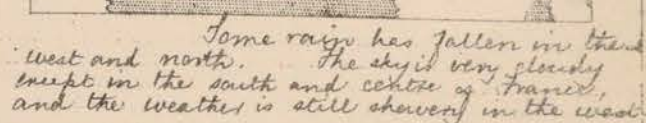 Some rain has fallen in the
west and north. The sky is very cloudy
except in the south and centre of France,
and the weather is still showery in the west